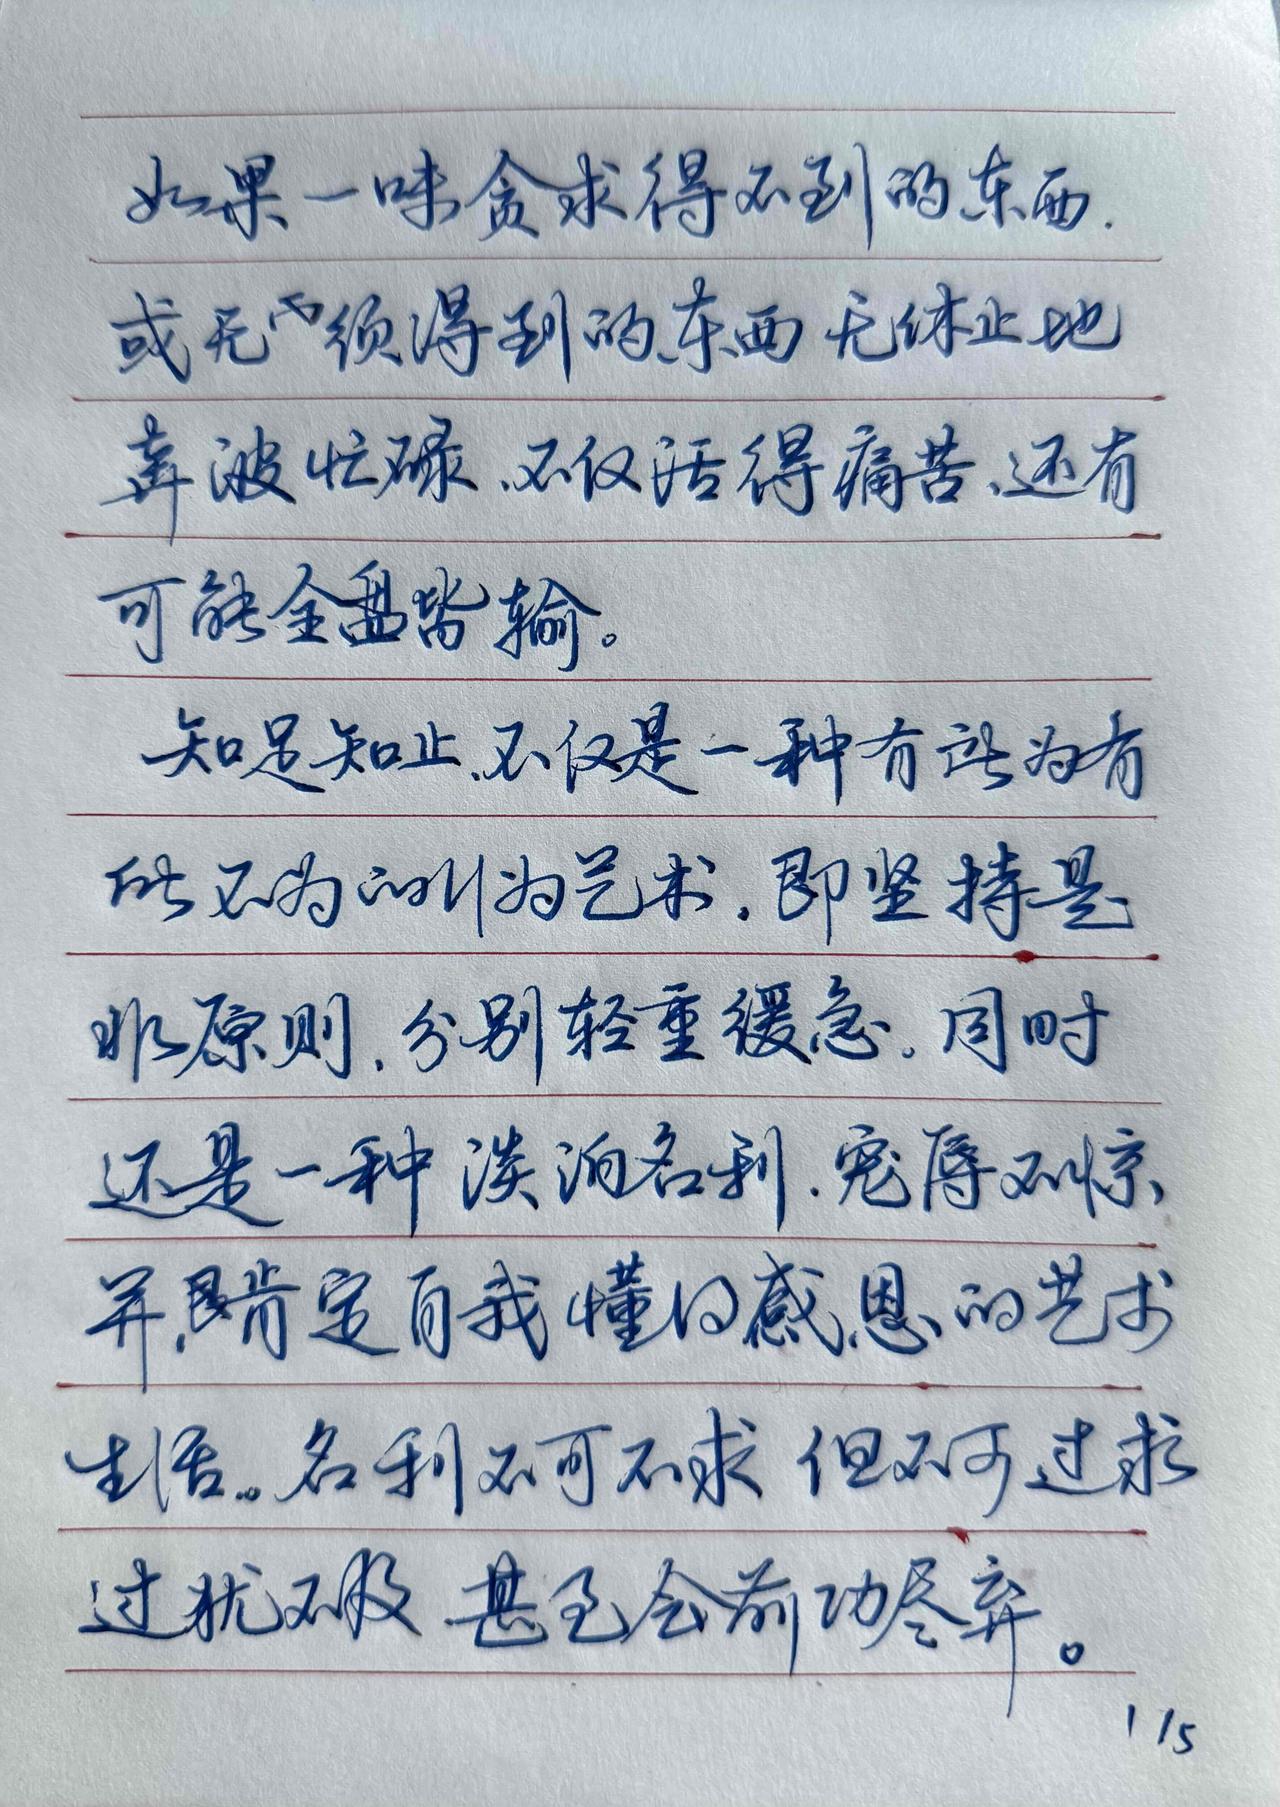 如果一味贪求得不到的东西.
或无需须得到的东西无休止地
奔波忙碌、不仅活得痛苦、还有
可能全盘皆输。
知足知止、不仅是一种有所为有
所不为的行为艺术.即坚持是
非原则.分别轻重缓急.同时
还是一种淡泊名利.宠辱不惊、
并肯定自我懂的感恩的艺术
生活。名利不可不求 但不可过求
过犹不及.甚至会前功尽弃。
1/5